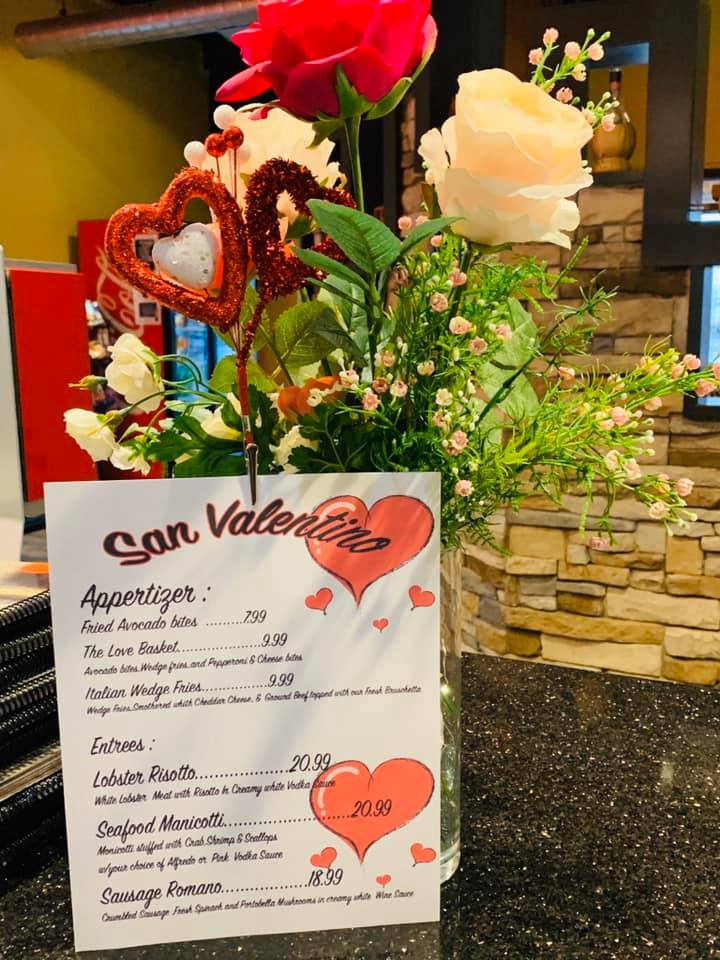 San Valentino
Appertizer :
Fried Avocado bites .........7.99
The Love Basket....................9.99
Avocado bites,Wedge fries,and Pepperoni & Cheese bites
Italian Wedge Fries................9.99
Wedge Fries,Smothered whith Cheddar Cheese, & Ground Beef,topped with our Fresh Bruschetta
Entrees :
Lobster Risotto...................20.99
White Lobster Meat with Risotto In Creamy white Vodka Sauce
Seafood Manicotti..........................20.99
Monicotti stuffed with Crab,Shrimp & Scallops
w/your choice of Alfredo or Pink Vodka Sauce
Sausage Romano.................18.99
Crumbled Sausage ,Fresh Spinach and Portobella Mushrooms in creamy white Wine Sauce